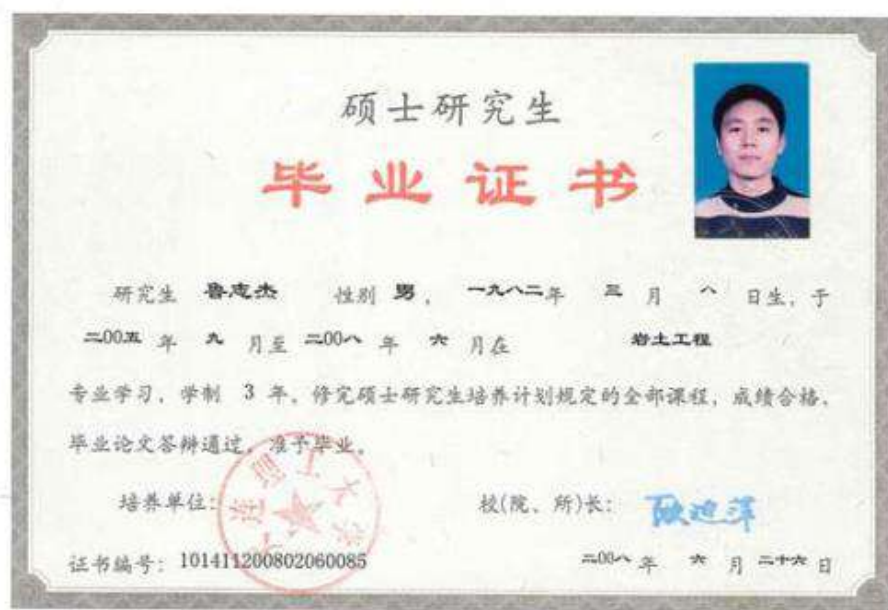 硕士研究生
毕业证书
研究生 鲁志杰 性别 男, 一九八二年 三 月 八 日生, 于
二00五 年 九 月至 二00八 年 六 月在 岩土工程
专业学习, 学制 3 年, 修完硕士研究生培养计划规定的全部课程, 成绩合格,
毕业论文答辩通过, 准予毕业。
培养单位:
大连理工大学
校(院、所)长:
证书编号: 101411200802060085
二00八 年 六 月 二十六 日